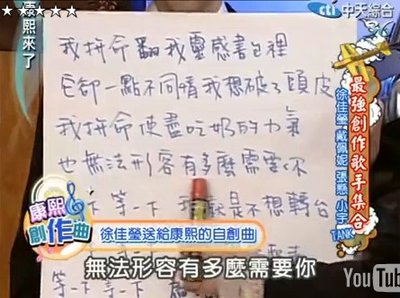 康熙來了
cti 中天綜合
我拚命翻我靈感書包裡
它卻一點不同情我想破了頭皮
我拚命使盡吃奶的力氣
也無法形容有多麼需要你
等一下 就是不想轉台
等一下
最強創作歌手集合
徐佳瑩 戴佩妮 張懸 小宇 TANK
康熙創作曲
徐佳瑩送給康熙的自創曲
無法形容有多麼需要你
YouTube